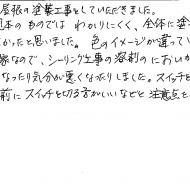 屋根の塗装工事をしていただきました。
見本のものでは わかりにくく、全体に塗
かったと思いました。 色のイメージが違ってい
家なので、シーリング工事の溶剤のにおいが
なったり気分が悪くなったりしました。スイッチを
前に スイッチを切る方がいいなどと 注意点を